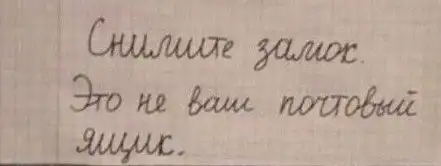 Снимите замок.
Это не ваш почтовый
ящик.